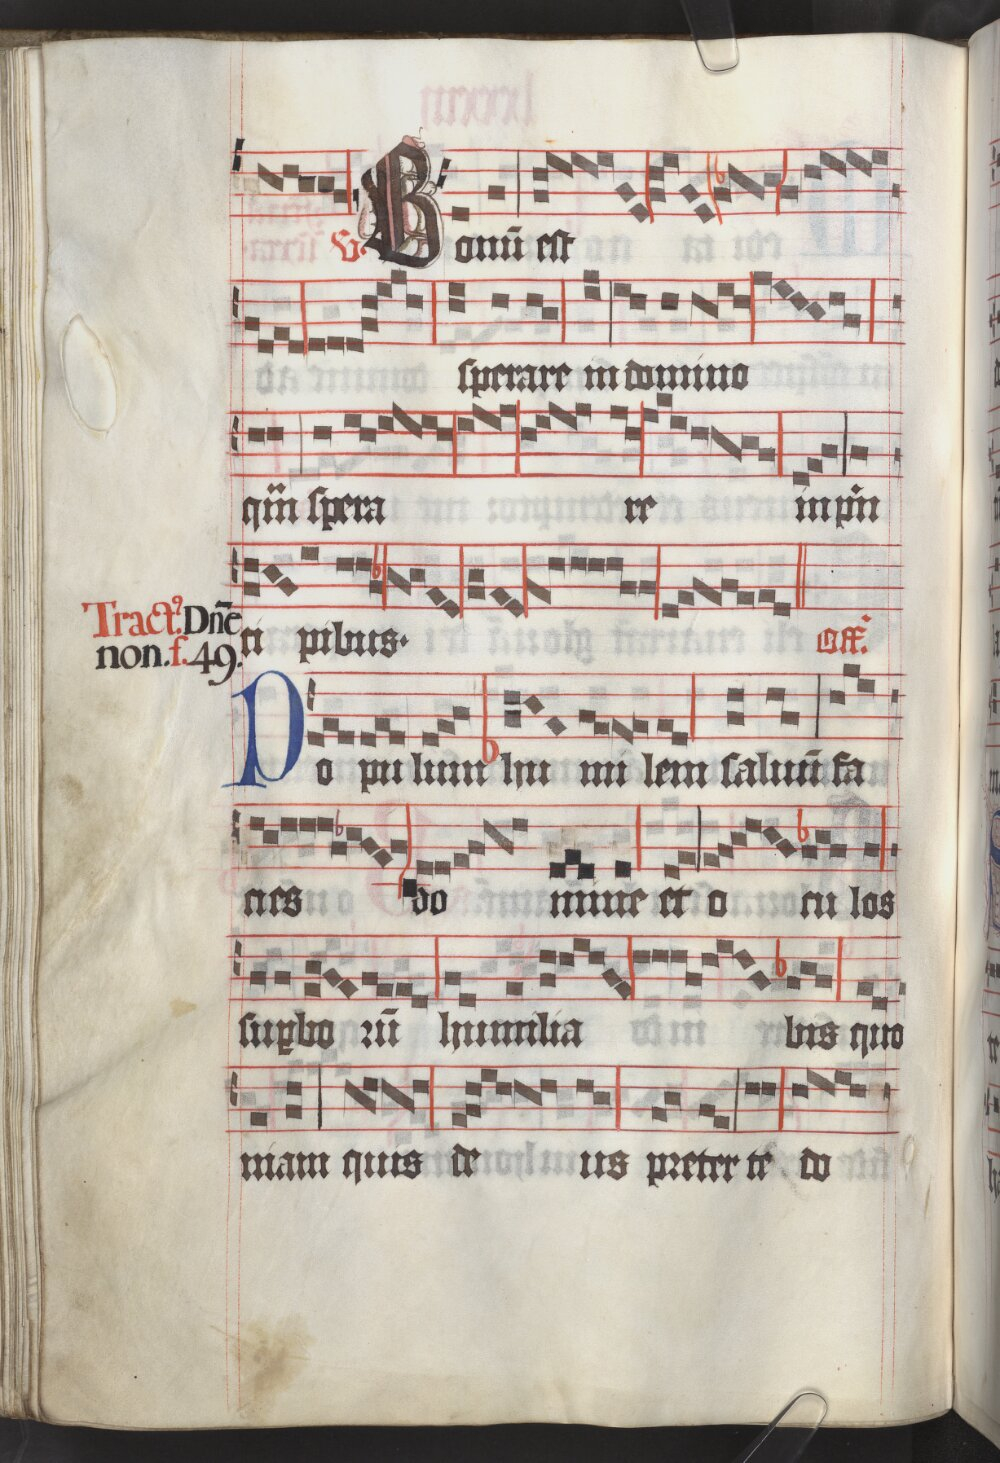 V. Bonū est
sperare in domino
qm̄ spera re in prin
ci pibus. Off.
Tract⁹. Dn̄e
non. f. 49.
Po pulum hu mi lem saluū fa
cies do mine et o cu los
suꝑbo rū humilia bis quo
niam quis de us preter te do